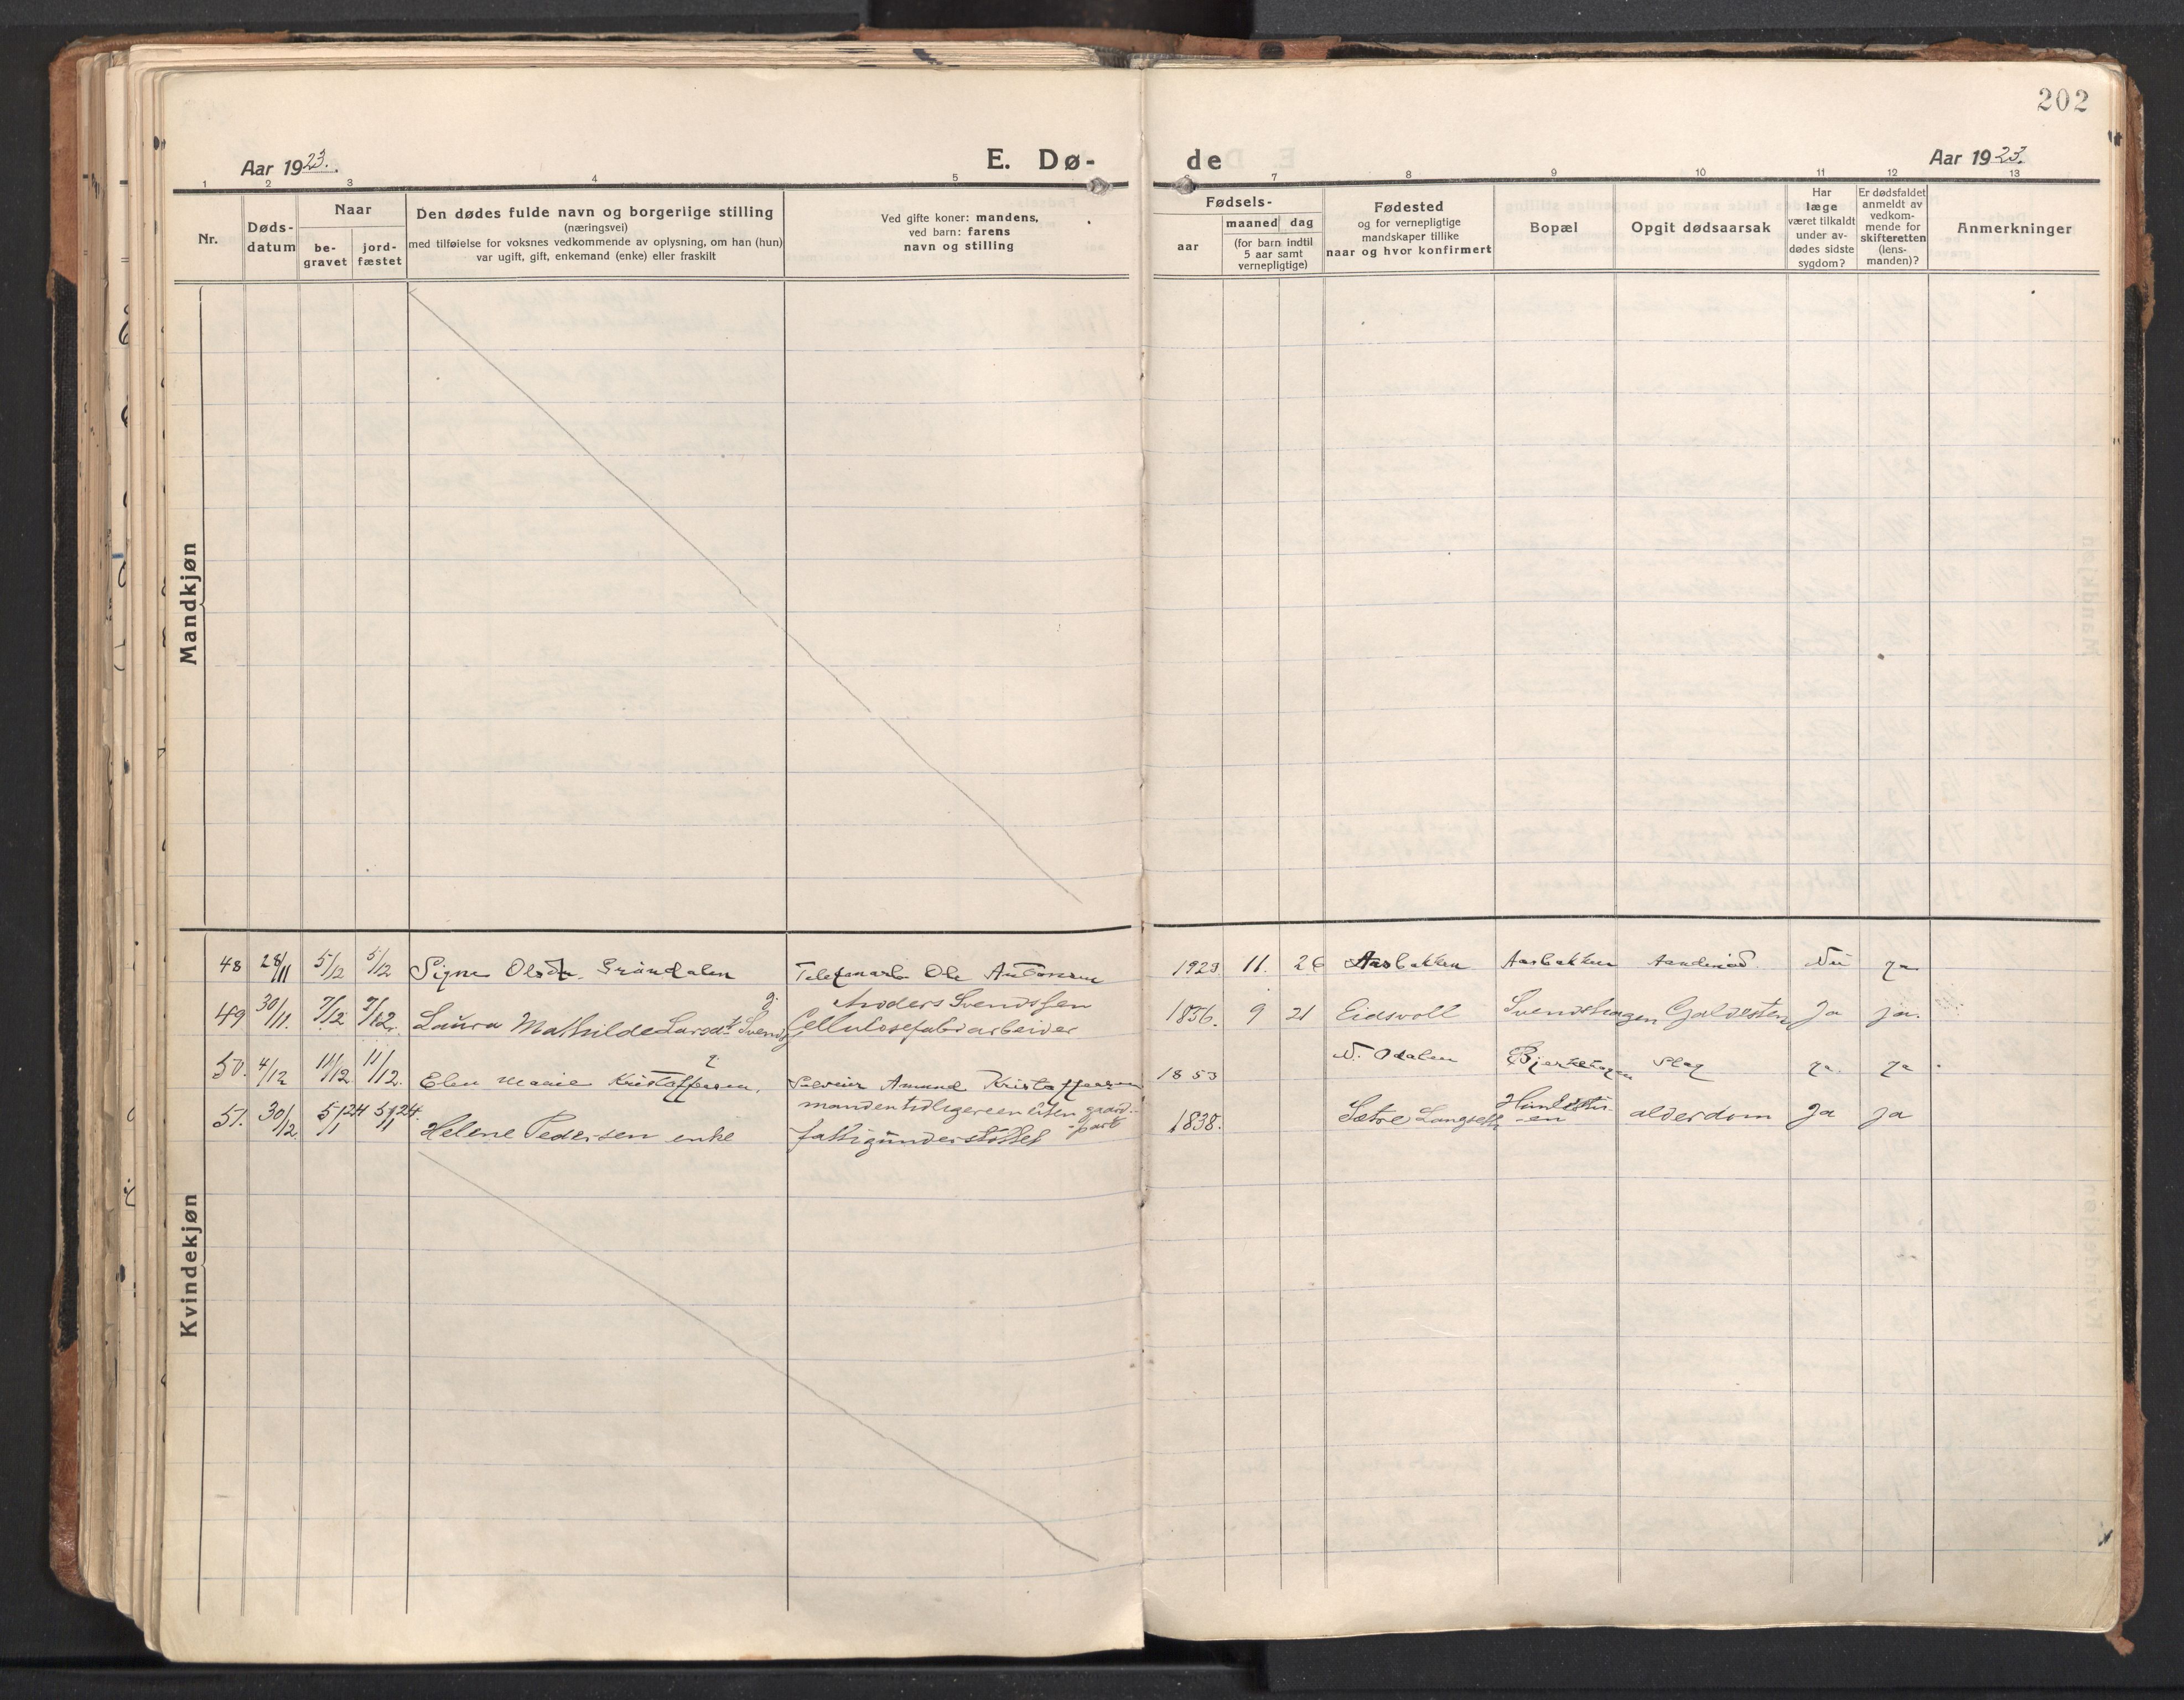 202
Aar 1923.
E. Dø-
de
Aar 1923.
1 2 3 4 5 7 8 9 10 11 12 13
Nr.
Døds-
datum
Naar
be-
gravet
jord-
fæstet
Den dødes fulde navn og borgerlige stilling
(næringsvei)
med tilføielse for voksnes vedkommende av oplysning, om han (hun)
var ugift, gift, enkemand (enke) eller fraskilt
Ved gifte koner: mandens,
ved barn: farens
navn og stilling
Fødsels-
aar
maaned dag
(for barn indtil
5 aar samt
vernepligtige)
Fødested
og for vernepligtige
mandskaper tillike
naar og hvor konfirmert
Bopæl
Opgit dødsaarsak
Har
læge
været tilkaldt
under av-
dødes sidste
sygdom?
Er dødsfaldet
anmeldt av
vedkom-
mende for
skifteretten
(lens-
manden)?
Anmerkninger
Mandkjøn
Kvindekjøn
48 28/11 5/12 5/12 Signe Olsdtr. Gründalen Telefonarb Ole 1923 11. 26 Aasbakken Aasbakken Nei ja
g. Anders Svendssen
49 30/11. 7/12 7/12. Laura Mathilde Larsdt Svends Cellulosefabrarbeider 1856. 9 21 Eidsvoll Svendshagen Galdesten Ja ja.
50. 4/12 11/12. 11/12. Elen Marie Kristoffersen, Amund Kristoffersen 1853 N. Odalen Bjerkehagen Slag ja. ja
manden tidligere en liten gaard-
-part
51. 30/12. 5/1 24 5/1 24. Helene Pedersen enke fattigunderstöttet 1838. Sætre Langseth -en alderdom Ja ja